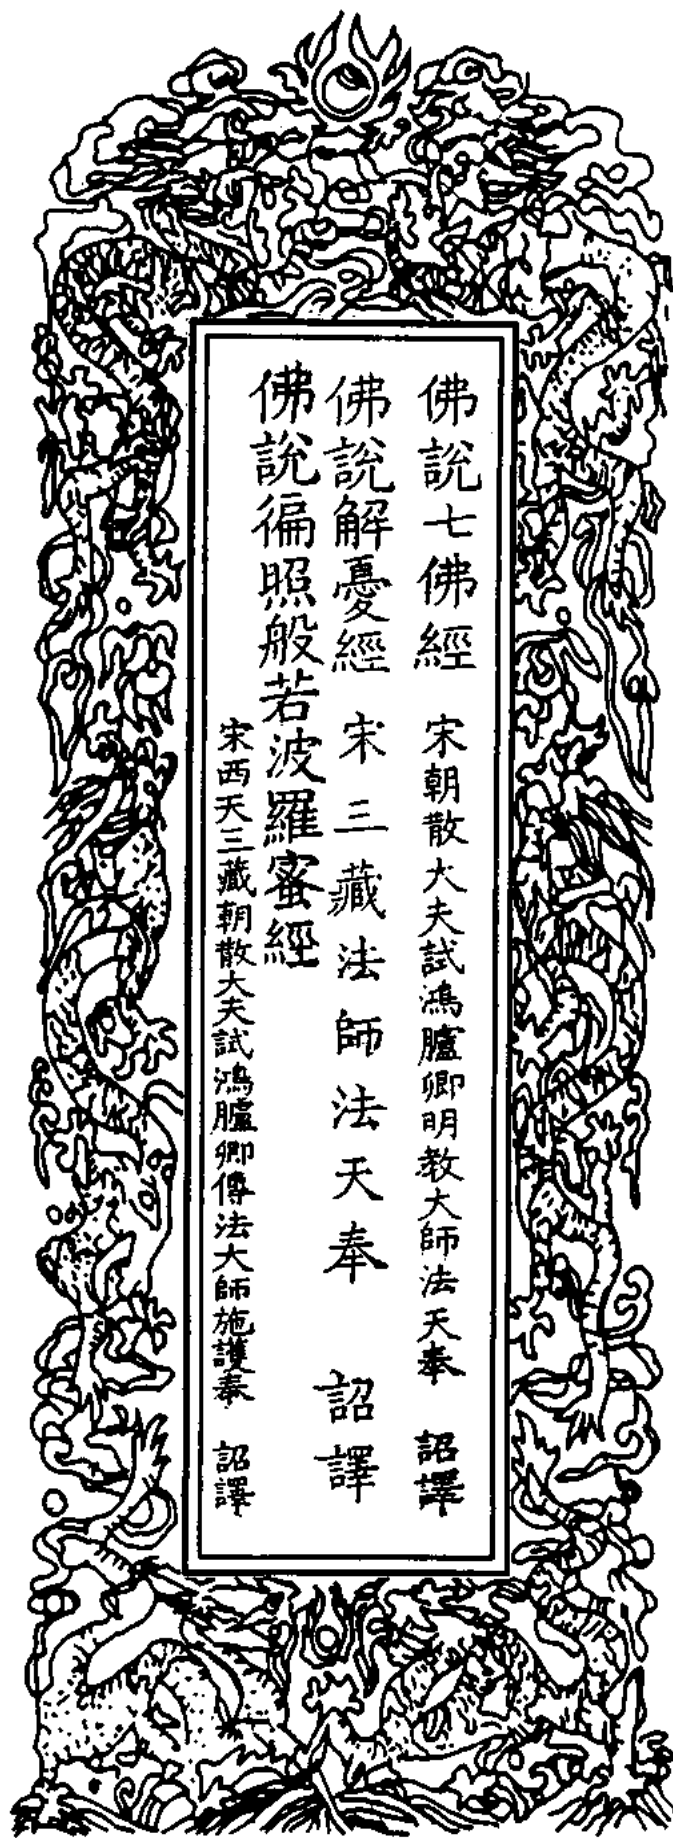 佛說七佛經　宋朝散大夫試鴻臚卿明教大師法天奉　詔譯
佛說解憂經　宋三藏法師法天奉　詔譯
佛說徧照般若波羅蜜經
宋西天三藏朝散大夫試鴻臚卿傳法大師施護奉　詔譯